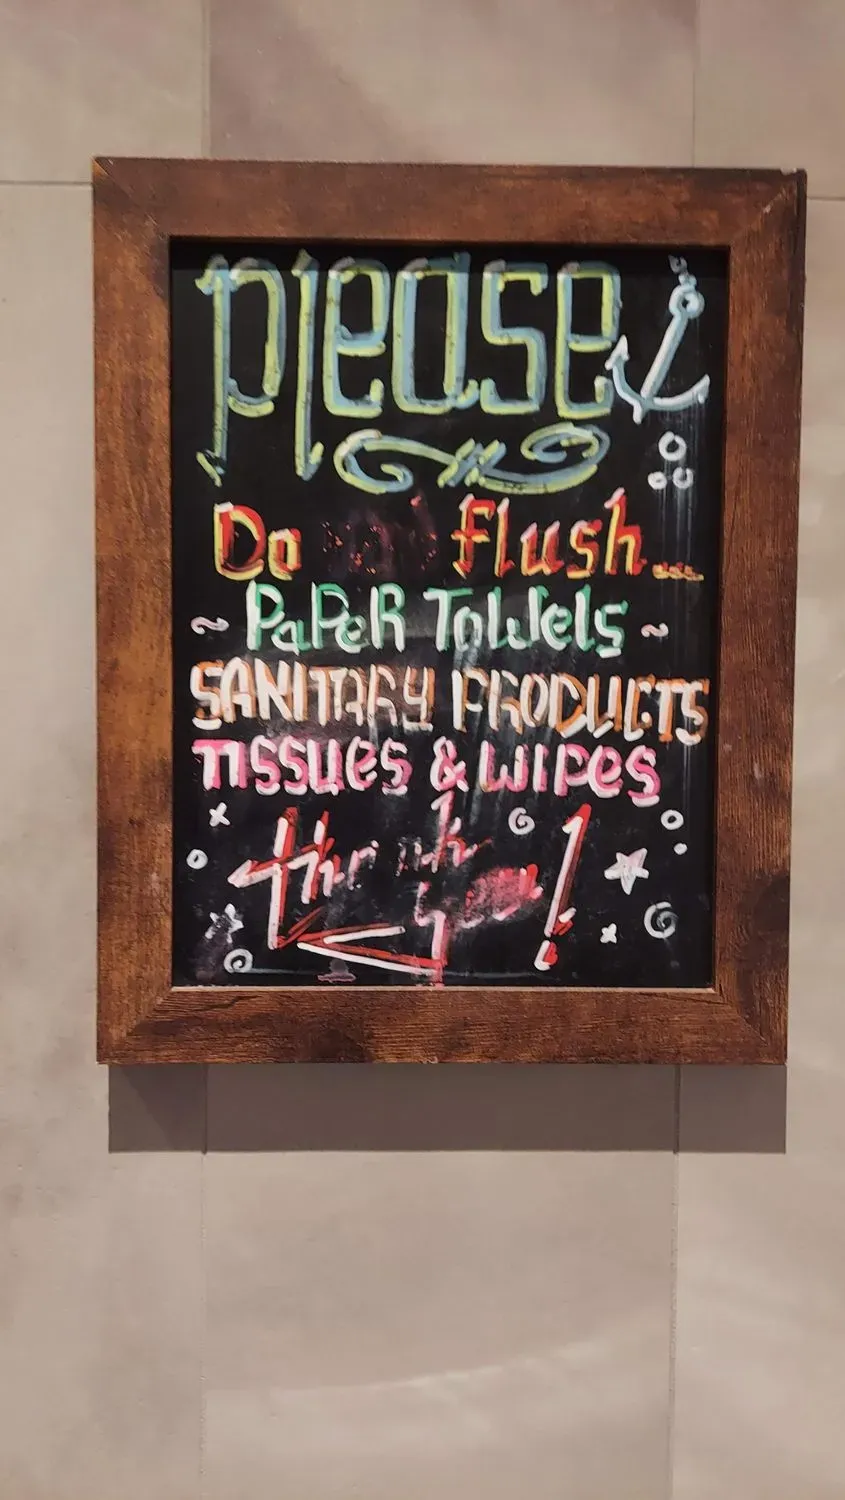 please
Do flush...
~ PaPeR Towels ~
SANITARY PRODUCTS
TISSUES & WIPES
thank
you!